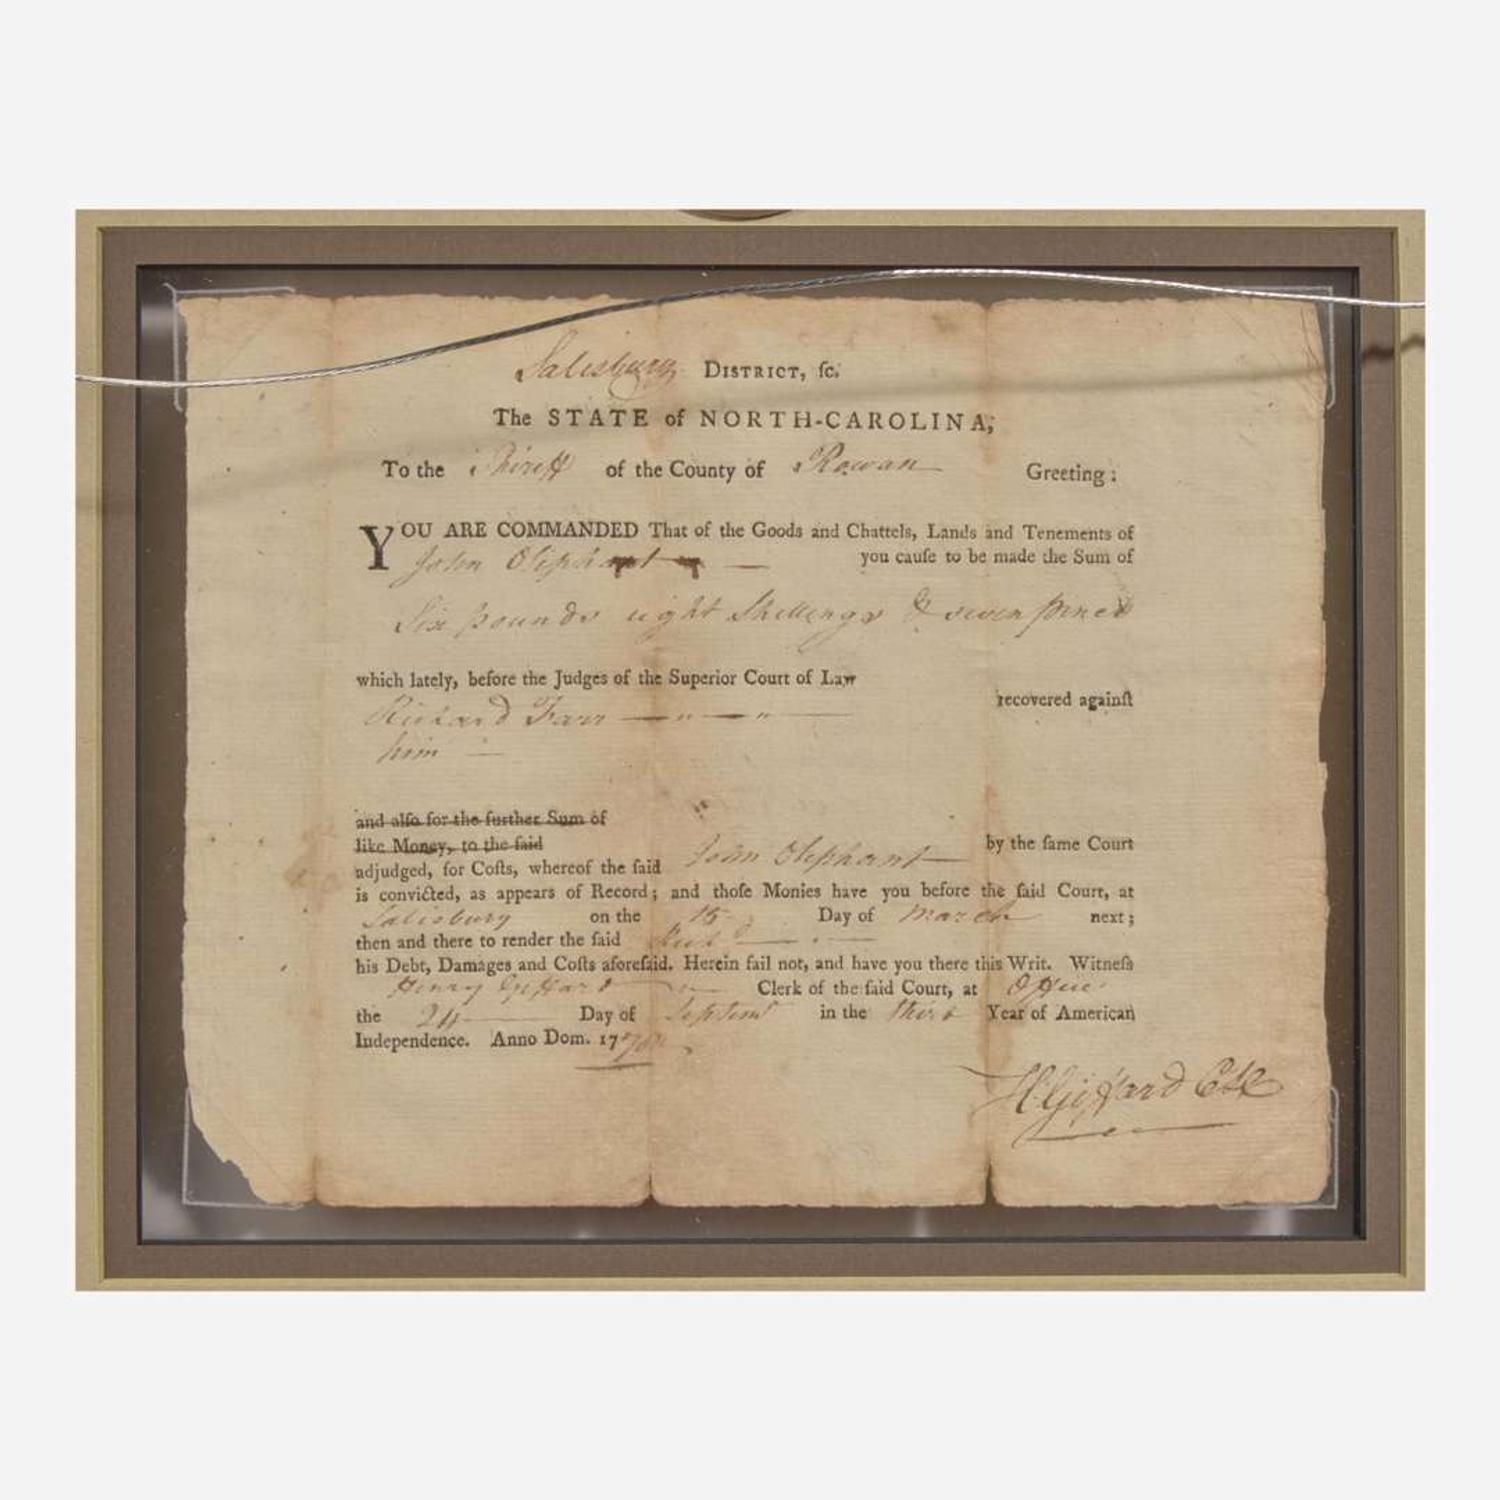 Salisbury DISTRICT, ſc.
The STATE of NORTH-CAROLINA,
To the Shireff of the County of Rowan Greeting:
YOU ARE COMMANDED That of the Goods and Chattels, Lands and Tenements of
John Oliphant you cauſe to be made the Sum of
Six pounds eight Shillings & seven pence
which lately, before the Judges of the Superior Court of Law
Richard Farr recovered againſt
him
and alſo for the further Sum of
like Money, to the ſaid John Oliphant by the ſame Court
adjudged, for Coſts, whereof the ſaid
is convicted, as appears of Record; and thoſe Monies have you before the ſaid Court, at
Salisbury on the 15 Day of March next;
then and there to render the ſaid Richd
his Debt, Damages and Coſts aforeſaid. Herein fail not, and have you there this Writ. Witneſs
Henry Giffard Clerk of the ſaid Court, at Office
the 24 Day of Septemr in the third Year of American
Independence. Anno Dom. 1778
H Giffard Clk